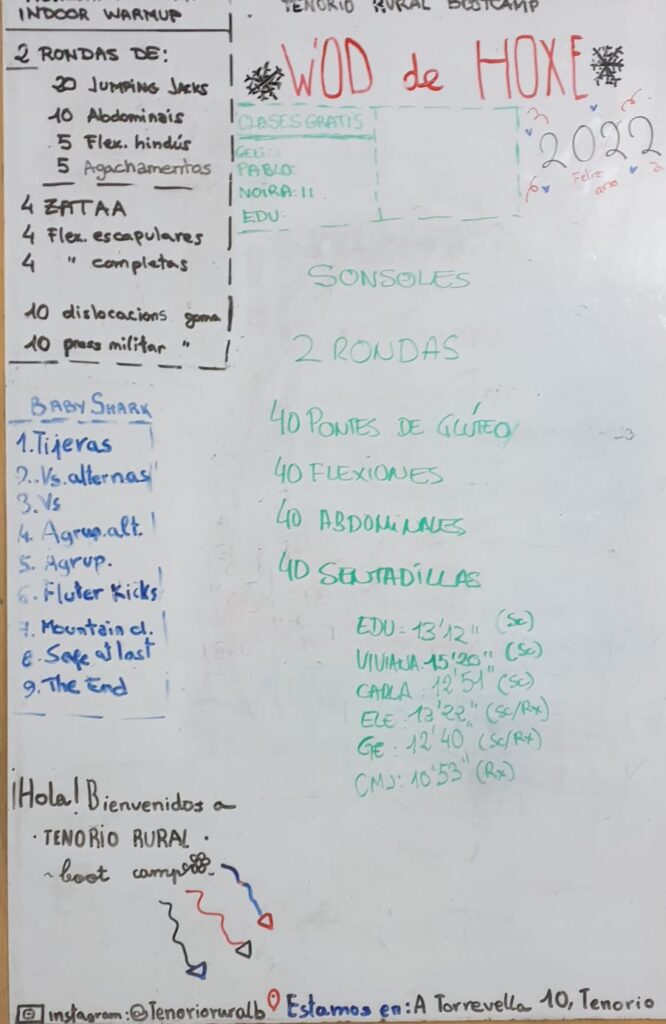 INDOOR WARMUP
2 RONDAS DE:
20 JUMPING JACKS
10 Abdominais
5 Flex. hindús
5 Agachamentos
4 ZATAA
4 Flex. escapulares
4 " completas
10 dislocacions goma
10 press militar "
BABY SHARK
1. Tijeras
2. Vs. alternas
3. Vs
4. Agrup. alt.
5. Agrup.
6. Fluter Kicks
7. Mountain cl.
8. Safe at last
9. The End
¡Hola! Bienvenidos a
· TENORIO RURAL ·
~ boot camp
TENORIO RURAL BOOTCAMP
WOD de HOXE
CLASES GRATIS
GELI:
PABLO:
NOIRA: II
EDU:
2022
Feliz
ano
SONSOLES
2 RONDAS
40 PONTES DE GLÚTEO
40 FLEXIONES
40 ABDOMINALES
40 SENTADILLAS
EDU: 13'12" (Sc)
VIVIANA: 15'20" (Sc)
CARLA: 12'51" (Sc)
ELE: 13'22" (Sc/Rx)
GE: 12'40 (Sc/Rx)
CMJ: 10'53" (Rx)
instagram: @Tenorioruralb
Estamos en: A Torrevella 10, Tenorio